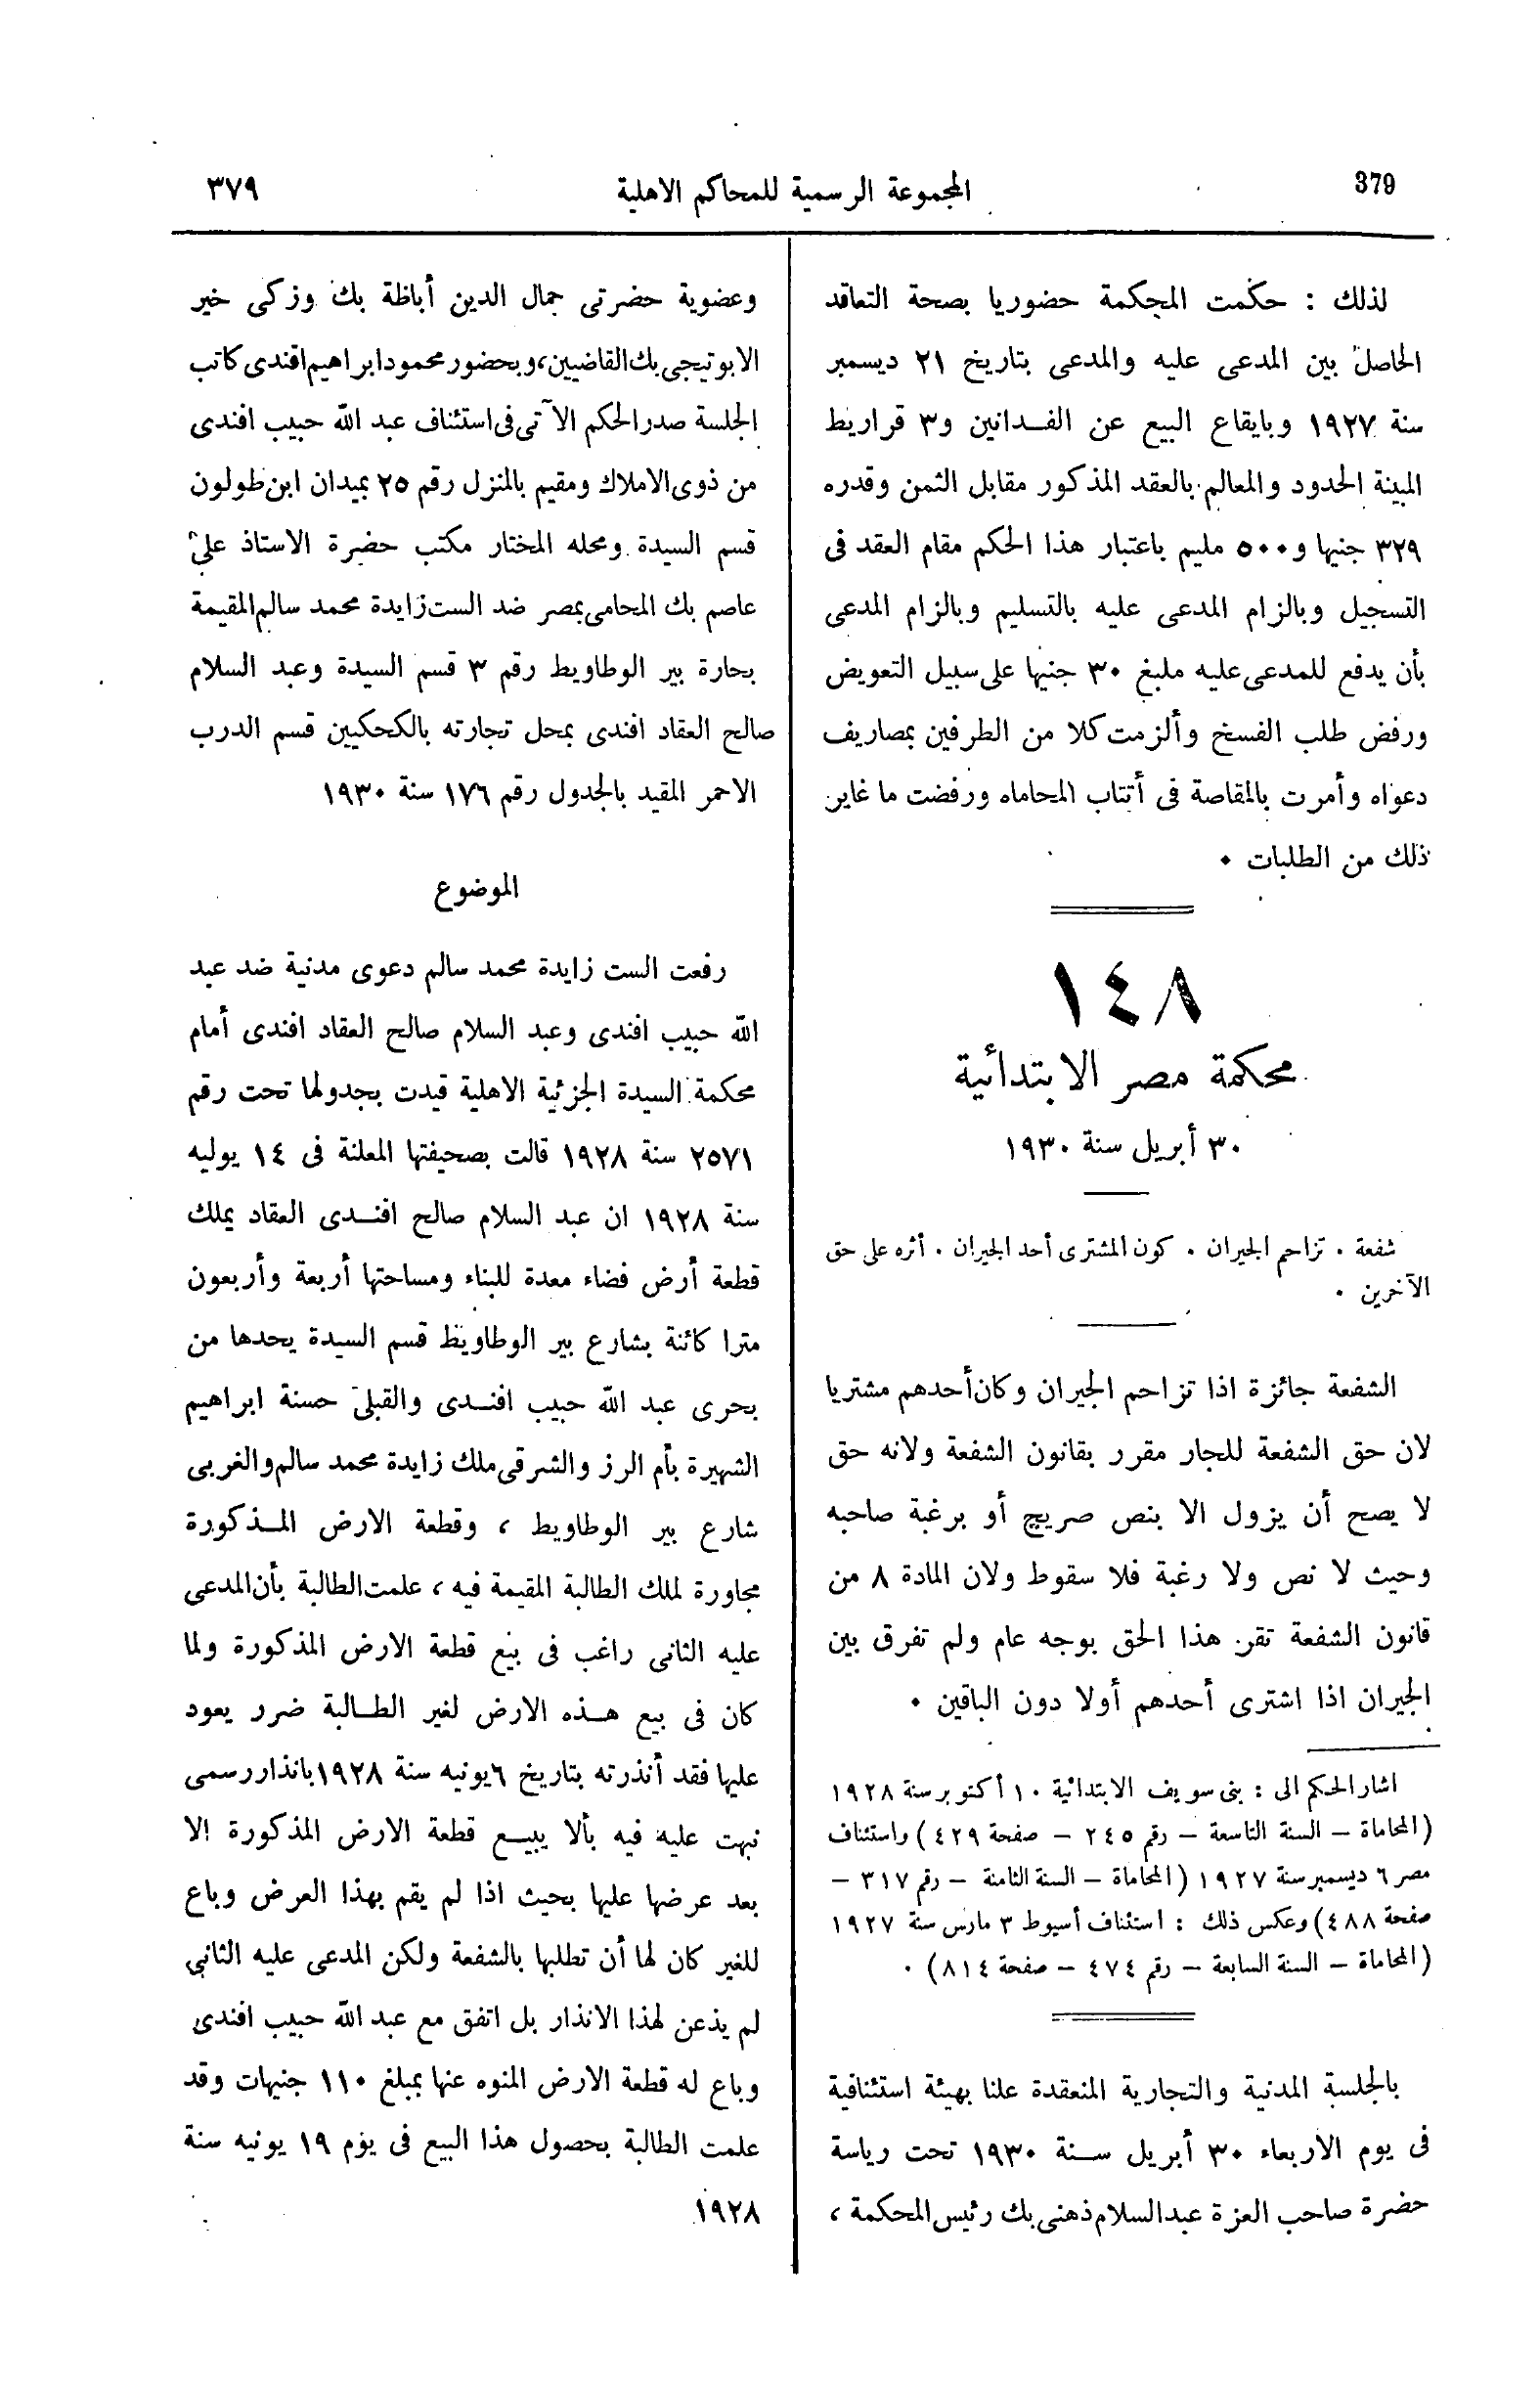 379
المجموعة الرسمية للمحاكم الاهلية
٣٧٩
لذلك : حكمت المحكمة حضوريا بصحة التعاقد
الحاصل بين المدعى عليه والمدعى بتاريخ ٢١ ديسمبر
سنة ١٩٢٧ وبايقاع البيع عن الفدانين و٣ قراريط
المبينة الحدود والمعالم بالعقد المذكور مقابل الثمن وقدره
٣٢٩ جنيها و٥٠٠ مليم باعتبار هذا الحكم مقام العقد فى
التسجيل وبالزام المدعى عليه بالتسليم وبالزام المدعى
بأن يدفع للمدعى عليه ملبغ ٣٠ جنيها على سبيل التعويض
ورفض طلب الفسخ وألزمت كلا من الطرفين بمصاريف
دعواه وأمرت بالمقاصة فى أتتاب المحاماه ورفضت ما غاير
ذلك من الطلبات ٠
١٤٨
محكمة مصر الابتدائية
٣٠ أبريل سنة ١٩٣٠
شفعة ٠ تزاحم الجيران ٠ كون المشترى أحد الجيران ٠ أثره على حق
الآخرين ٠
الشفعة جائزة اذا تزاحم الجيران وكان أحدهم مشتريا
لان حق الشفعة للجار مقرر بقانون الشفعة ولانه حق
لا يصح أن يزول الا بنص صريح أو برغبة صاحبه
وحيث لا نص ولا رغبة فلا سقوط ولان المادة ٨ من
قانون الشفعة تقر هذا الحق بوجه عام ولم تفرق بين
الجيران اذا اشترى أحدهم أولا دون الباقين ٠
اشار الحكم الى : بنى سويف الابتدائية ١٠ أكتوبر سنة ١٩٢٨
(المحاماة – السنة التاسعة – رقم ٢٤٥ – صفحة ٤٢٩) واستئناف
مصر ٦ ديسمبر سنة ١٩٢٧ (المحاماة – السنة الثامنة – رقم ٣١٧ –
صفحة ٤٨٨) وعكس ذلك : استئناف أسيوط ٣ مارس سنة ١٩٢٧
(المحاماة – السنة السابعة – رقم ٤٧٤ – صفحة ٨١٤) ٠
بالجلسة المدنية والتجارية المنعقدة علنا بهيئة استئنافية
فى يوم الاربعاء ٣٠ أبريل سنة ١٩٣٠ تحت رياسة
حضرة صاحب العزة عبد السلام ذهنى بك رئيس المحكمة ،
وعضوية حضرتى جمال الدين أباظة بك وزكى خير
الابوتيجى بك القاضيين، وبحضور محمود ابراهيم افندى كاتب
الجلسة صدر الحكم الآتى فى استئناف عبد الله حبيب افندى
من ذوى الاملاك ومقيم بالمنزل رقم ٢٥ بميدان ابن طولون
قسم السيدة ومحله المختار مكتب حضرة الاستاذ على
عاصم بك المحامى بمصر ضد الست زايدة محمد سالم المقيمة
بحارة بير الوطاويط رقم ٣ قسم السيدة وعبد السلام
صالح العقاد افندى بمحل تجارته بالكحكيين قسم الدرب
الاحمر المقيد بالجدول رقم ١٧٦ سنة ١٩٣٠
الموضوع
رفعت الست زايدة محمد سالم دعوى مدنية ضد عبد
الله حبيب افندى وعبد السلام صالح العقاد افندى أمام
محكمة السيدة الجزئية الاهلية قيدت بجدولها تحت رقم
٢٥٧١ سنة ١٩٢٨ قالت بصحيفتها المعلنة فى ١٤ يوليه
سنة ١٩٢٨ ان عبد السلام صالح افندى العقاد يملك
قطعة أرض فضاء معدة للبناء ومساحتها أربعة وأربعون
مترا كائنة بشارع بير الوطاويط قسم السيدة يحدها من
بحرى عبد الله حبيب افندى والقبلى حسنة ابراهيم
الشهيرة بأم الرز والشرقى ملك زايدة محمد سالم والغربى
شارع بير الوطاويط ، وقطعة الارض المذكورة
مجاورة لملك الطالبة المقيمة فيه ، علمت الطالبة بأن المدعى
عليه الثانى راغب فى بيع قطعة الارض المذكورة ولما
كان فى بيع هذه الارض لغير الطالبة ضرر يعود
عليها فقد أنذرته بتاريخ ٦ يونيه سنة ١٩٢٨ بانذار رسمى
نبهت عليه فيه بألا يبيع قطعة الارض المذكورة الا
بعد عرضها عليها بحيث اذا لم يقم بهذا العرض وباع
للغير كان لها أن تطلبها بالشفعة ولكن المدعى عليه الثانى
لم يذعن لهذا الانذار بل اتفق مع عبد الله حبيب افندى
وباع له قطعة الارض المنوه عنها بمبلغ ١١٠ جنيهات وقد
علمت الطالبة بحصول هذا البيع فى يوم ١٩ يونيه سنة
١٩٢٨